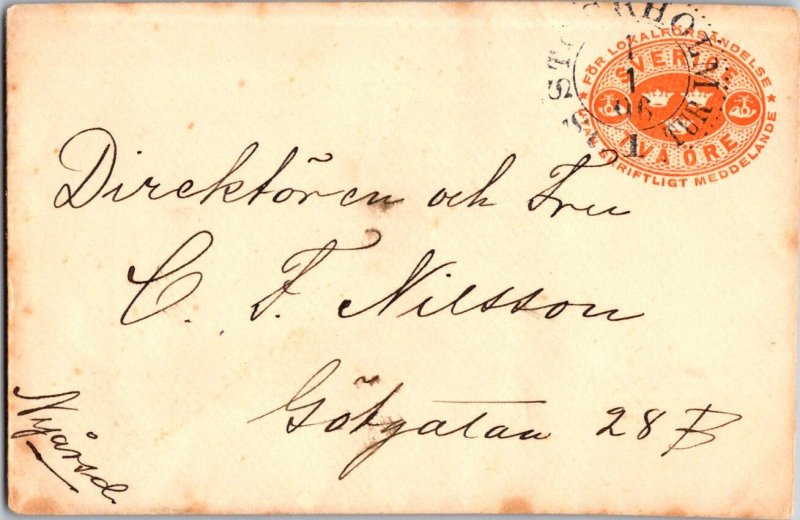 FÖR LOKALFÖRSÄNDELSE
SVERIGE
TVÅ ÖRE
SKRIFTLIGT MEDDELANDE
STOCKHOLM
1
1
96
1 TUR
L
Direktören och Fru
C. F. Nilsson
Götgatan 28 B
Nyårsd.